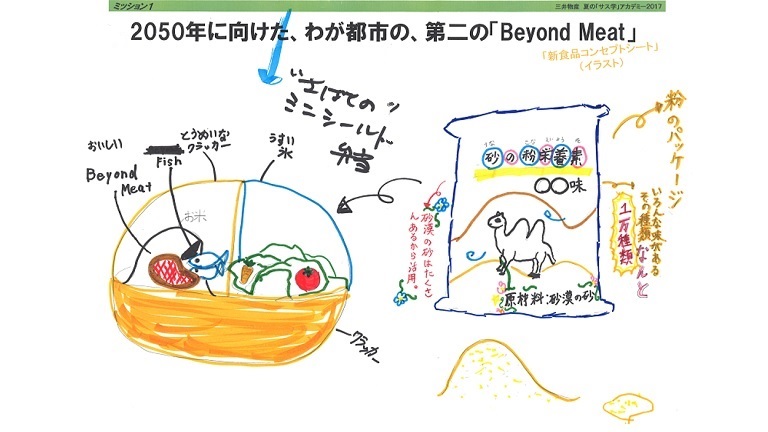 ミッション1
三井物産 夏の「サス学」アカデミー2017
2050年に向けた、わが都市の、第二の「Beyond Meat」
「新食品コンセプトシート」
（イラスト）
"さばての"
ミニシールド
弁当
おいしい
Beyond
Meat
Fish
とうめいな
クラッカー
うすい
氷
お米
クラッカー
粉のパッケージ
砂の粉栄養素
〇〇味
原材料:砂漠の砂
砂漠の砂はたくさ
んあるから活用。
いろんな味がある
その種類なんと
1万種類